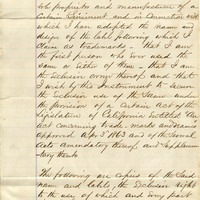 sole proprietor and manufacturer of a
Certain Liniment and in Connection with
which I have adopted the name and
design of the label following which I
Claim as trademarks - that I am
the first person who has used the
name or either of them - that I am
the exclusive owner thereof and that
I wish by this Instrument to secure
the exclusive use of the same under
the provision of a Certain Act of the
Legislature of California entitled An
act concerning trade marks and names
approved Apr 3d 1863 and of the several
Acts amendatory thereof and Supplemen
tary thereto
The following are copies of the said
name and label, the exclusive right
to the use of which and every part